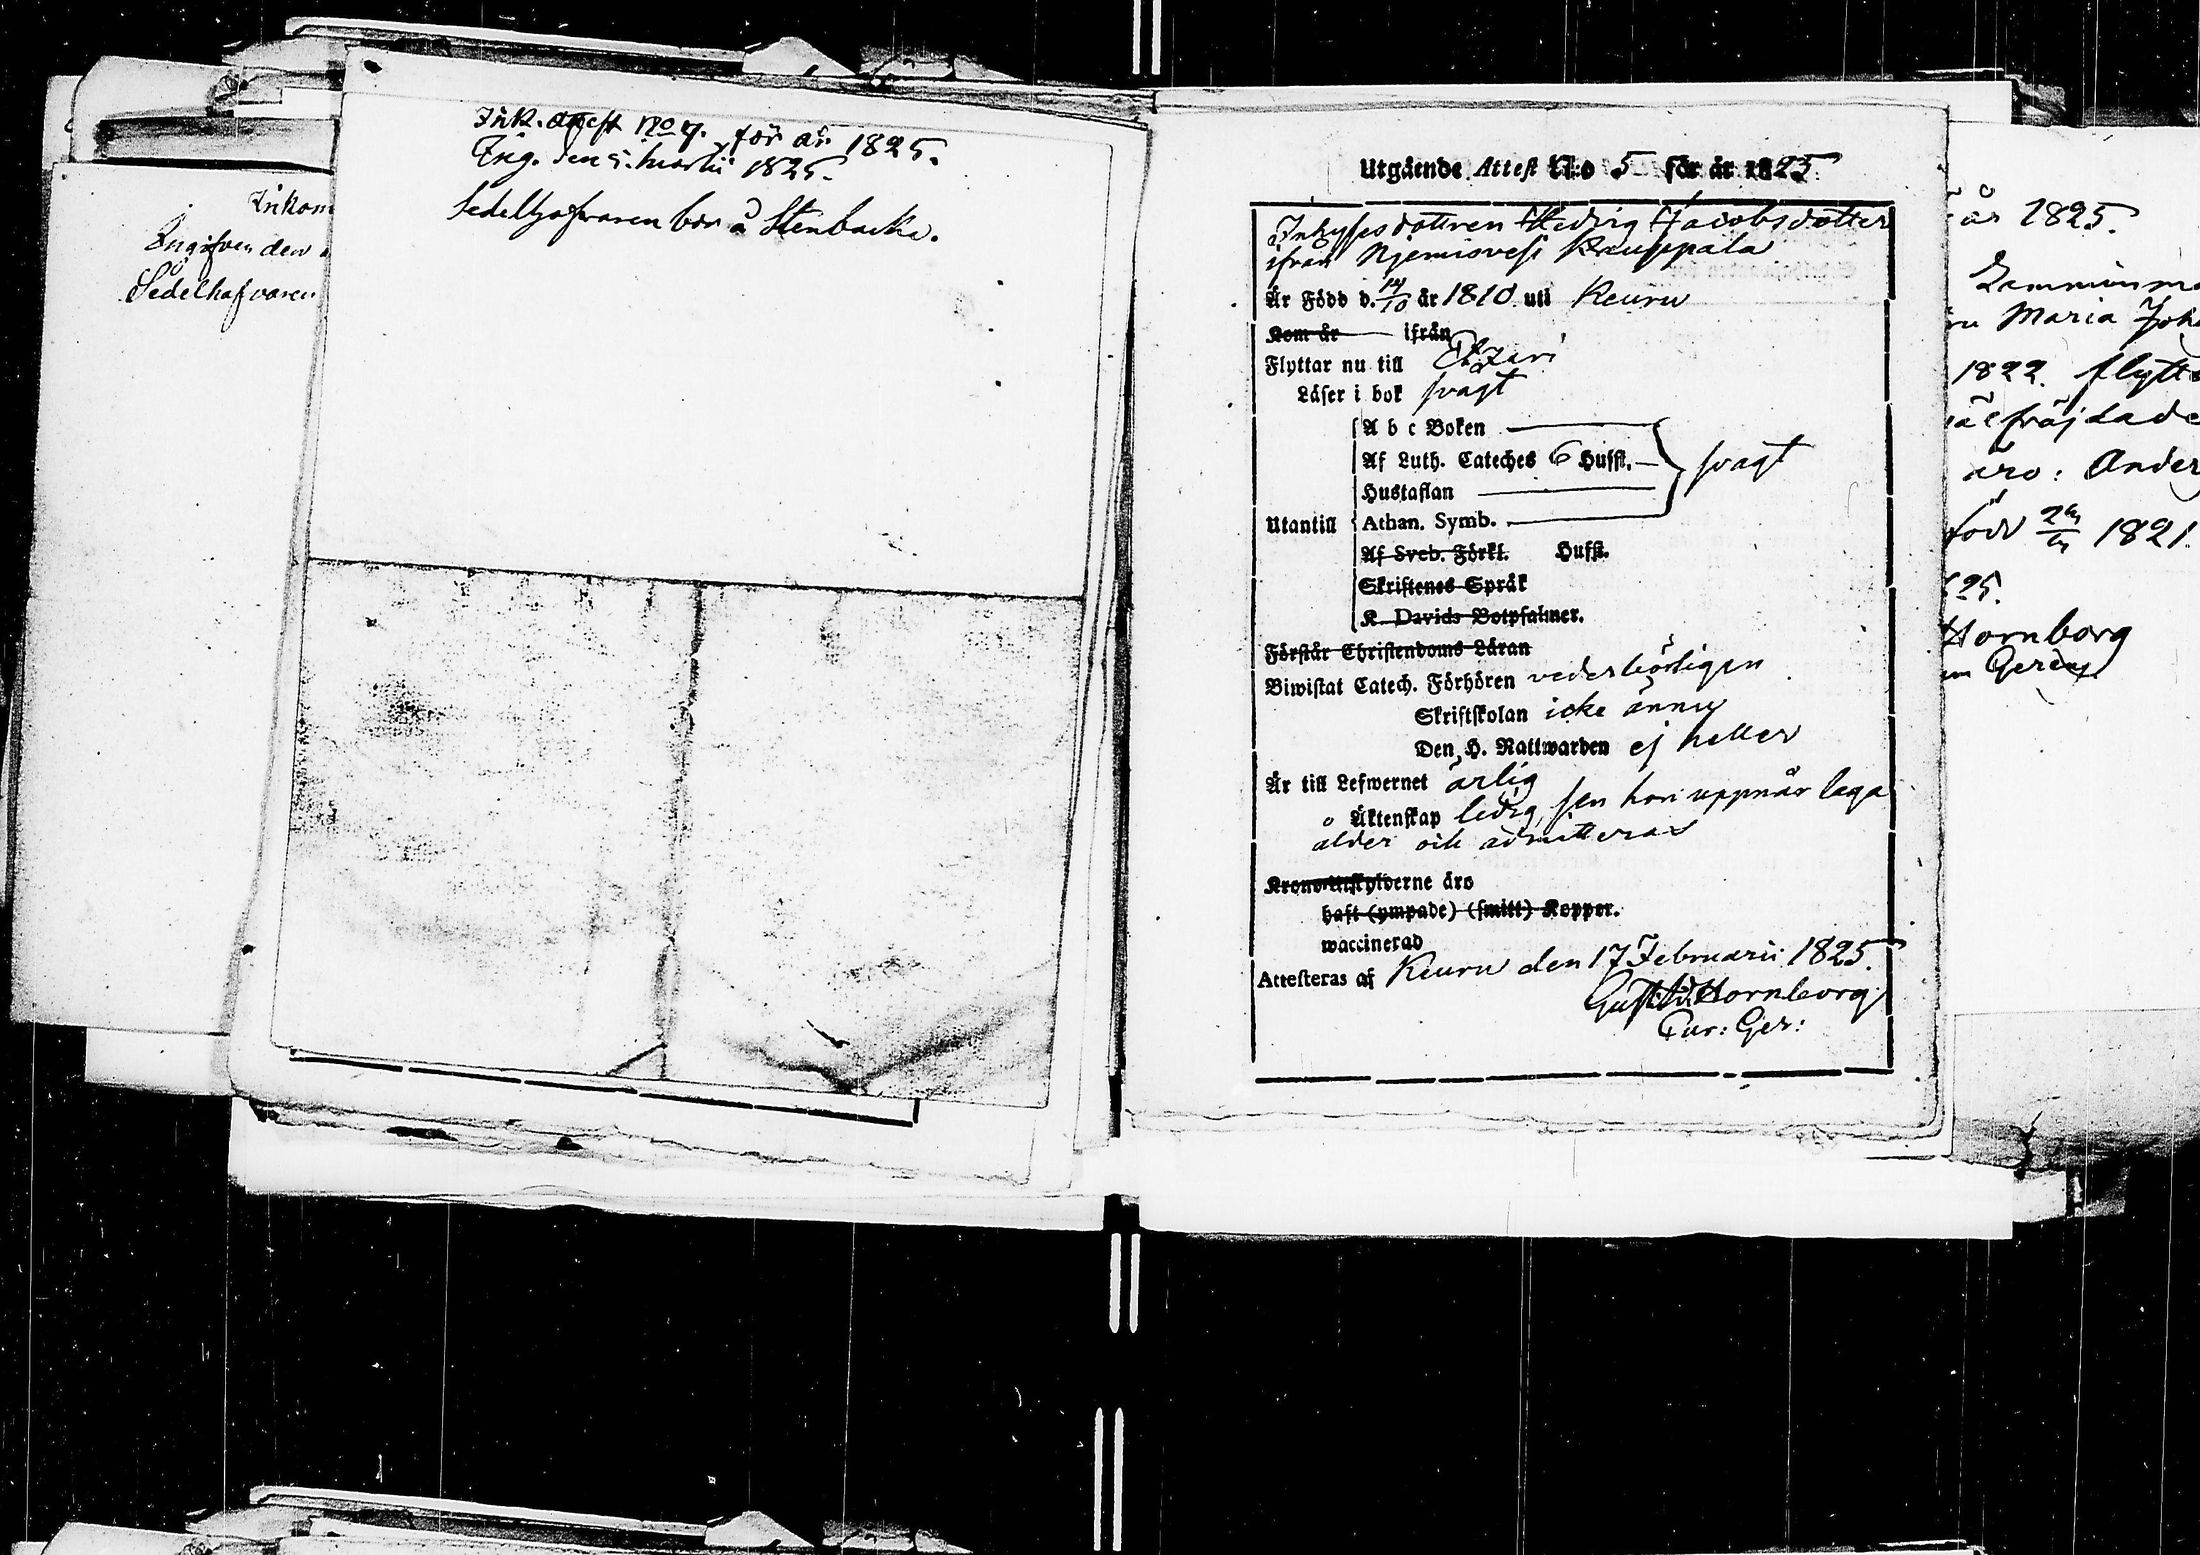 Inkom
Ingifven den
Sedelhafvaren
Ink. attest No 7. för år 1825.
Ing. den 5. Martii 1825.
Sedelhafvaren bor å Stenbacka.
Utgående Attest N:o 5 för år 1825
Inhysesdottren Hedvig Jacobsdotter
ifrån Njemisvesi Kauppala
Är Född d. 14/10 år 1810 uti Keuru
Kom år ifrån
Flyttar nu till Etzeri
Läser i bok svagt
A b c Boken
Af Luth. Cateches 6 Hufst. svagt
Hustaflan
Utantill Athan. Symb.
Af Sveb. Förkl. Hufst.
Skriftenes Språk
K. Davids Botpsalmer.
Förstår Christendoms Läran
Biwistat Catech. Förhören vederbörligen
Skriftskolan icke ännu
Den H. Nattwarden ej heller
Är till Lefwernet ärlig
Äktenskap ledig, sen hon uppnår laga
ålder och admitteras
Krono-Utskylderne äro
haft (ympade) (smitt) Koppor.
waccinerad
Attesteras af Keuru den 17 Februarii 1825.
Gust. Ad. Hornborg
Pur: Ger:
år 1825.
Maria Joh
1822. flytt
äro: Ander
född 1821.
25.
Hornborg
Gerens